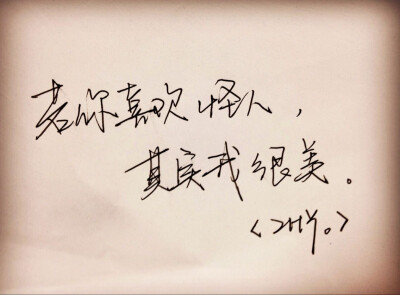 若你喜欢怪人，
其实我很美。